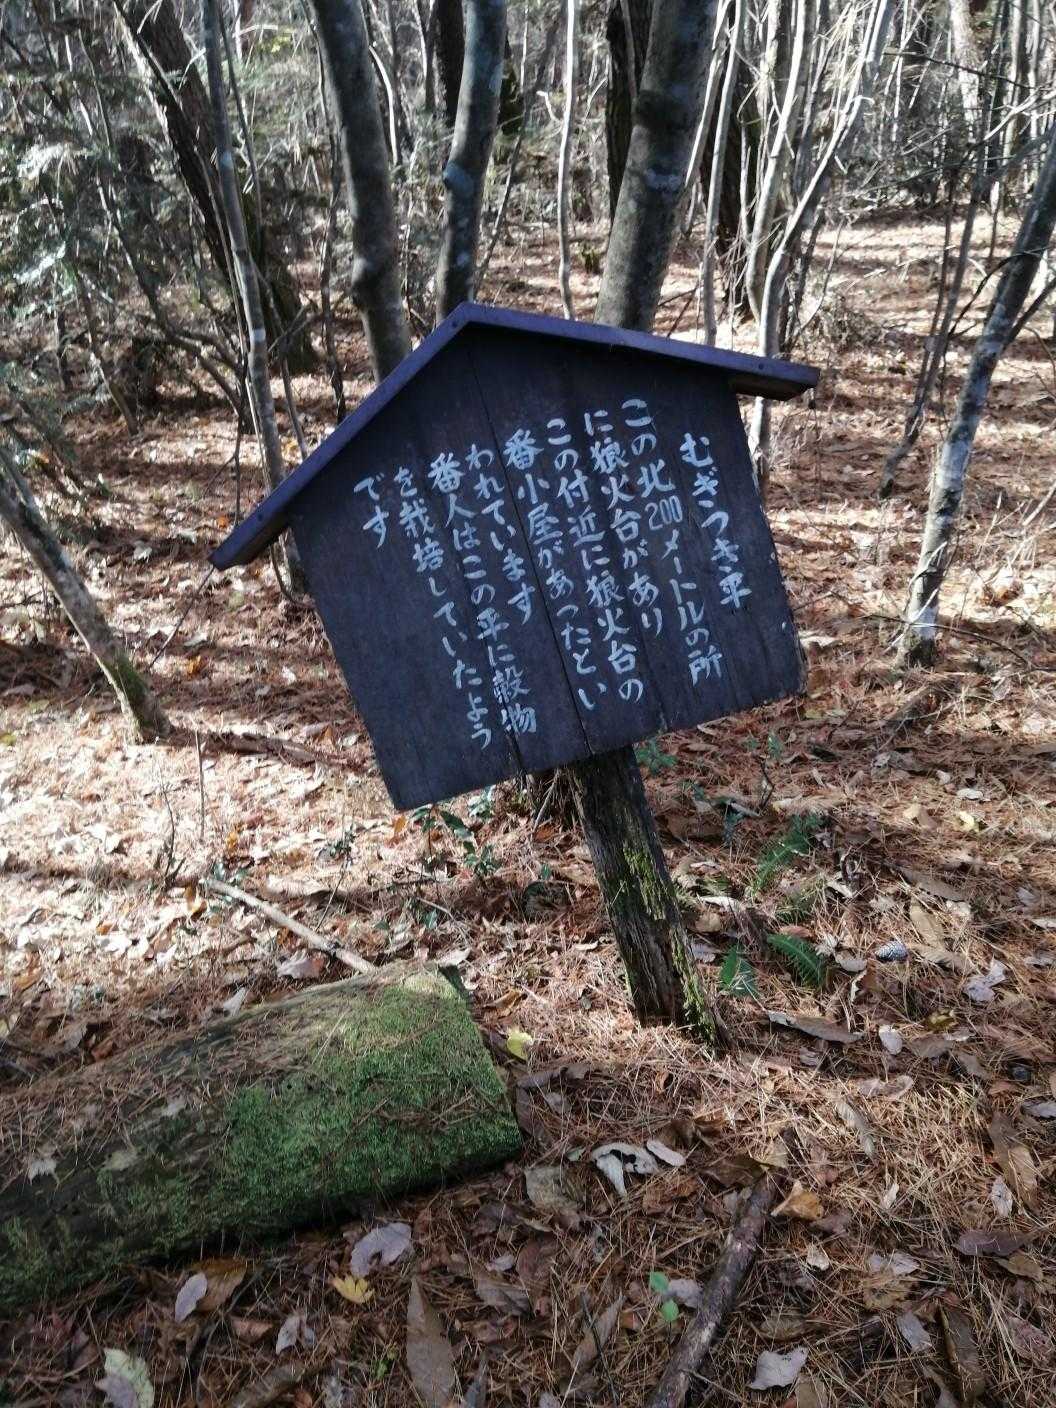 むぎつき平
この北200メートルの所
に狼火台があり
この付近に狼火台の
番小屋があったとい
われています
番人はこの平に穀物
を栽培していたよう
です